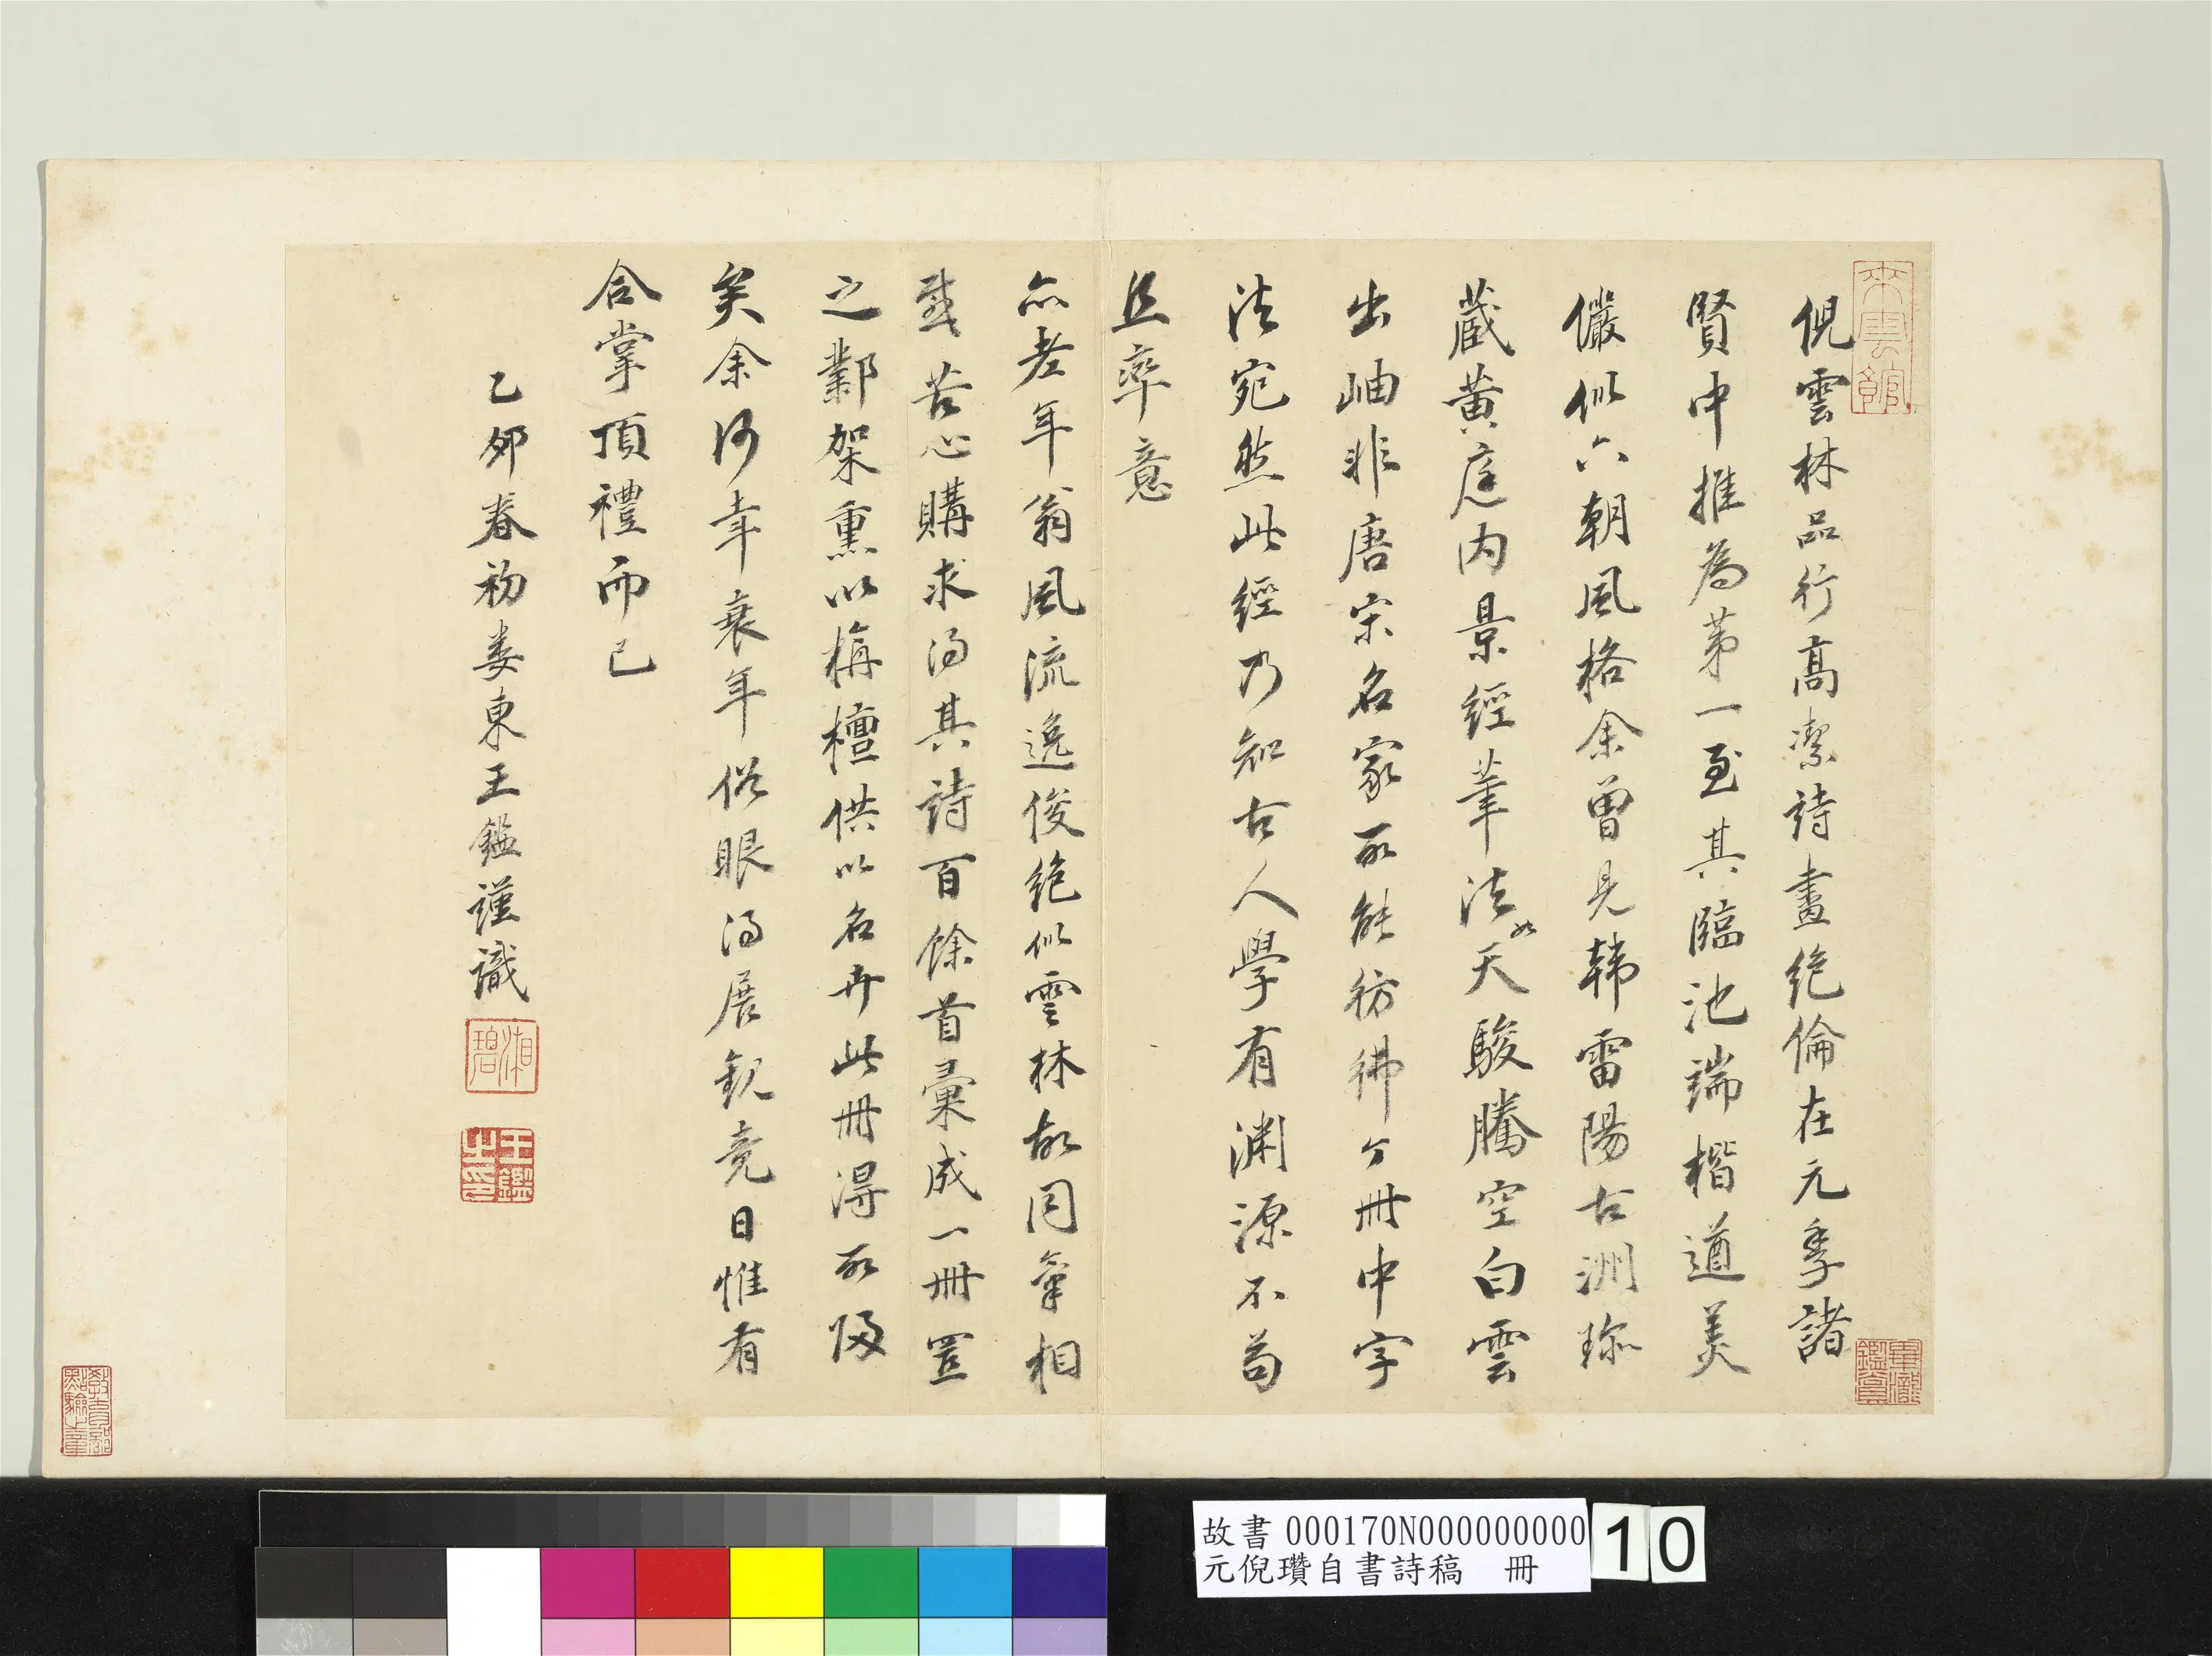 倪雲林品行高潔詩畫絕倫在元季諸
賢中推為第一至其臨池端楷遒美
儼似六朝風格余曾見韓雷陽古洲珎
藏黃庭內景經筆法如天駿騰空白雲
出岫非唐宋名家所能彷彿今冊中字
法宛然此經乃知古人學有淵源不苟
且率意
年翁風流逸俊絕似雲林故同氣相
苦心購求得其詩百餘首彙成一冊置
之鄴架熏以栴檀供以名卉此冊得所歸
矣余何幸衰年俗眼得展觀竟日惟有
合掌頂禮而已
乙卯春初婁東王鑑謹識
湘碧
王鑑之印
來雲館
畢瀧鑑賞
教育部點驗之章
故書 000170N000000000
元倪瓚自書詩稿 冊
10